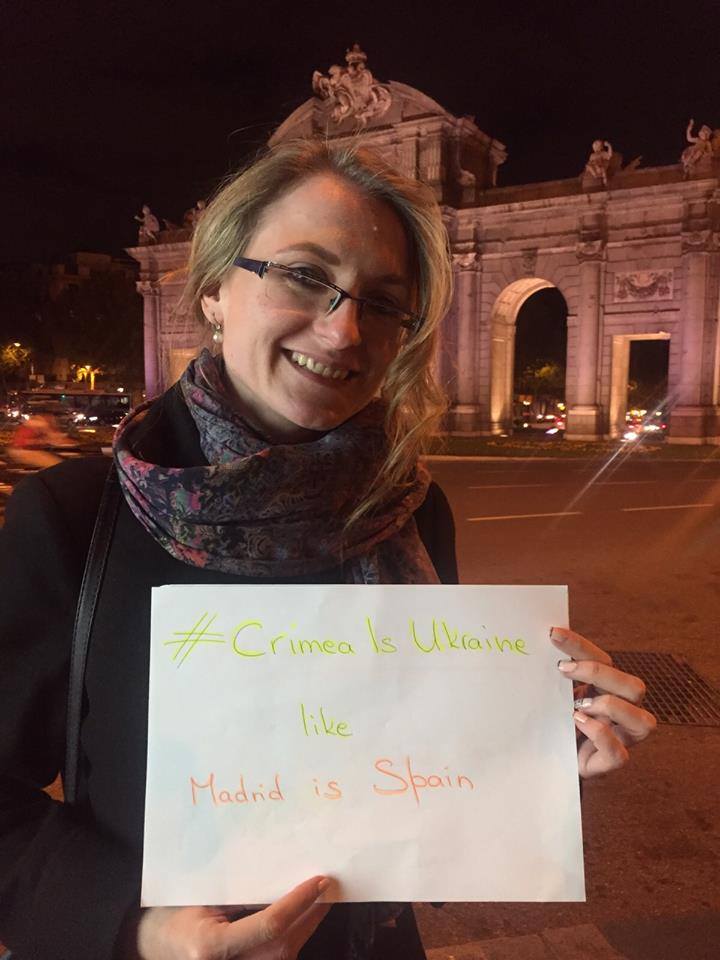 #Crimea Is Ukraine
like
Madrid is Spain